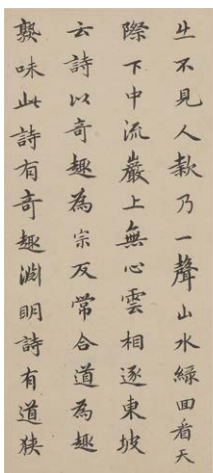 出不見人欸乃一聲山水綠回看天
際下中流巖上無心雲相逐東坡
云詩以奇趣為宗反常合道為趣
熟味此詩有奇趣淵明詩有道狹